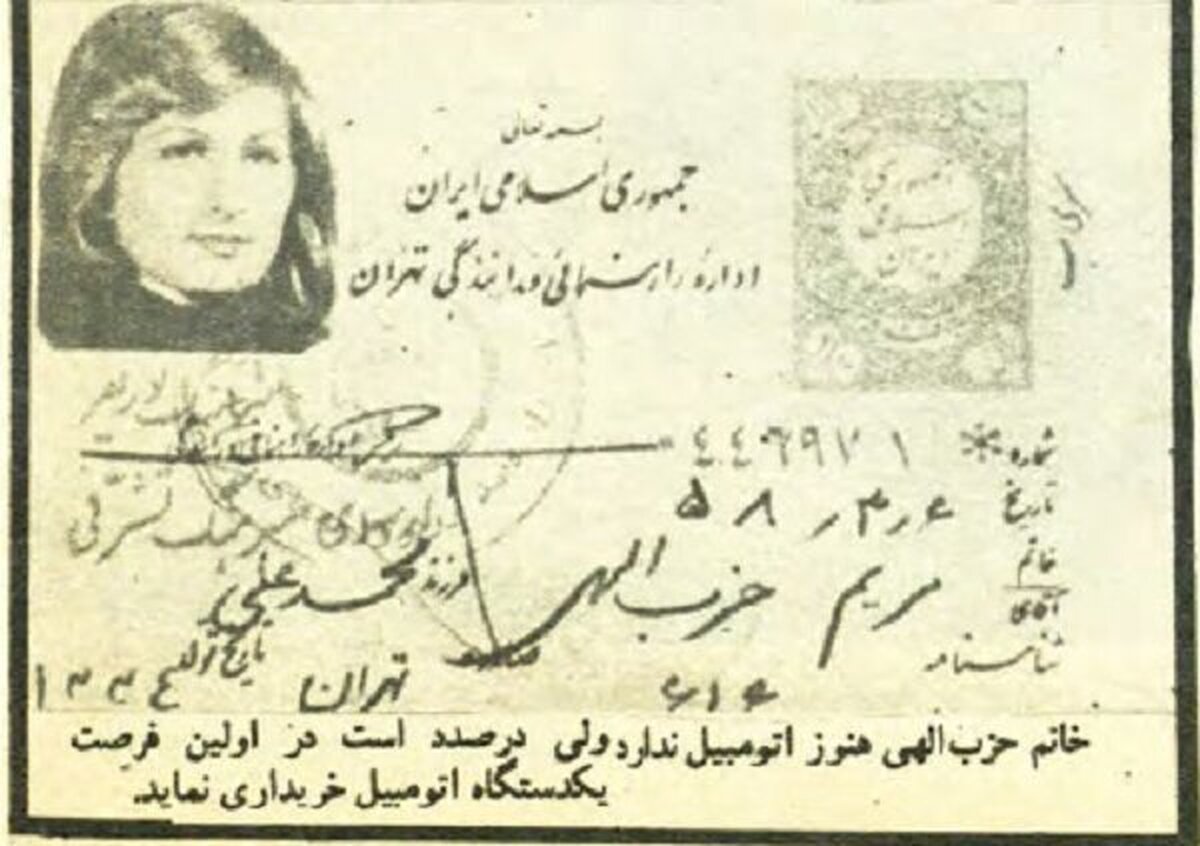 بسمه تعالی
جمهوری اسلامی ایران
اداره راهنمائی و رانندگی تهران
جمهوری اسلامی ایران
شماره ٤٤٠٦٩٧١
تاریخ ۶ ر ۳ ر ۵۸
خانم
آقای
مریم حزب الهی فرزند محمد علی
شناسنامه ۶۱۶ صادره تهران تاریخ تولد ۱۳۳۴
خانم حزب‌الهی هنوز اتومبیل ندارد ولی درصدد است در اولین فرصت
یکدستگاه اتومبیل خریداری نماید.